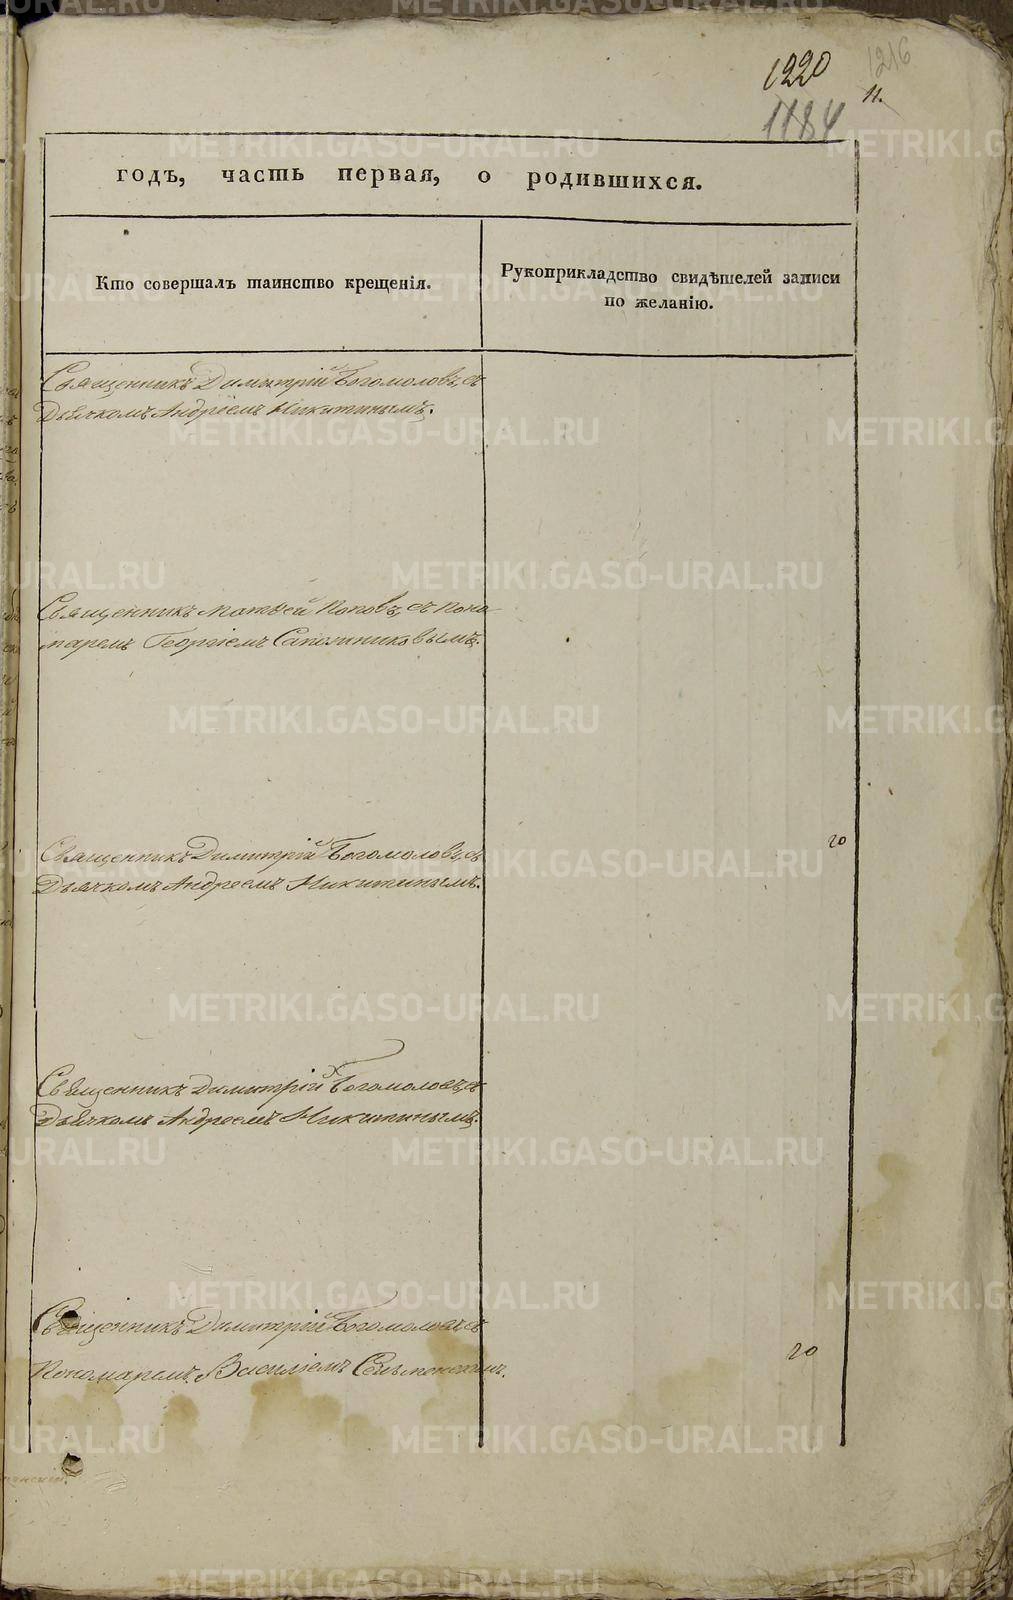 1220
1216
11.
1184
годъ, часть первая, о родившихся.
Кто совершалъ таинство крещенія.
Рукоприкладство свидѣтелей записи
по желанію.
Священникъ Димитрій Богомоловъ, съ
Дьячкомъ Андреемъ Никитинымъ.
Священникъ Матвей Поповъ, съ Поно-
маремъ Георгіемъ Сапожниковымъ.
20
Священникъ Димитрій Богомоловъ, съ
Дьячкомъ Андреемъ Никитинымъ.
Священникъ Димитрій Богомоловъ, съ
Дьячкомъ Андреемъ Никитинымъ.
Священникъ Димитрій Богомоловъ, съ
20
Пономаремъ Василіемъ
METRIKI.GASO-URAL.RU